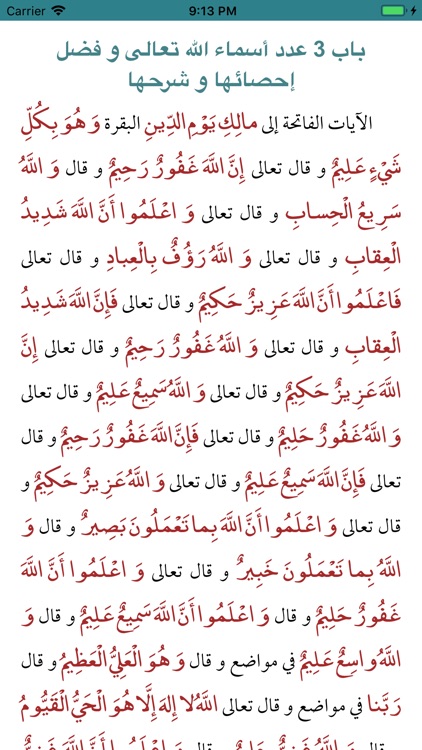 Carrier 9:13 PM
باب 3 عدد أسماء الله تعالى و فضل
إحصائها و شرحها
الآيات الفاتحة إلى مالِكِ يَوْمِ الدِّينِ البقرة وَ هُوَ بِكُلِّ
شَيْءٍ عَلِيمٌ و قال تعالى إِنَّ اللَّهَ غَفُورٌ رَحِيمٌ و قال وَ اللَّهُ
سَرِيعُ الْحِسابِ و قال تعالى وَ اعْلَمُوا أَنَّ اللَّهَ شَدِيدُ
الْعِقابِ و قال تعالى وَ اللَّهُ رَؤُفٌ بِالْعِبادِ و قال تعالى
فَاعْلَمُوا أَنَّ اللَّهَ عَزِيزٌ حَكِيمٌ و قال تعالى فَإِنَّ اللَّهَ شَدِيدُ
الْعِقابِ و قال تعالى وَ اللَّهُ غَفُورٌ رَحِيمٌ و قال تعالى إِنَّ
اللَّهَ عَزِيزٌ حَكِيمٌ و قال تعالى وَ اللَّهُ سَمِيعٌ عَلِيمٌ و قال تعالى
وَ اللَّهُ غَفُورٌ حَلِيمٌ و قال تعالى فَإِنَّ اللَّهَ غَفُورٌ رَحِيمٌ و قال
تعالى فَإِنَّ اللَّهَ سَمِيعٌ عَلِيمٌ و قال تعالى وَ اللَّهُ عَزِيزٌ حَكِيمٌ و
قال تعالى وَ اعْلَمُوا أَنَّ اللَّهَ بِما تَعْمَلُونَ بَصِيرٌ و قال وَ
اللَّهُ بِما تَعْمَلُونَ خَبِيرٌ و قال تعالى وَ اعْلَمُوا أَنَّ اللَّهَ
غَفُورٌ حَلِيمٌ و قال وَ اعْلَمُوا أَنَّ اللَّهَ سَمِيعٌ عَلِيمٌ و قال وَ
اللَّهُ واسِعٌ عَلِيمٌ في مواضع و قال وَ هُوَ الْعَلِيُّ الْعَظِيمُ و قال
رَبَّنا في مواضع و قال تعالى اللَّهُ لا إِلهَ إِلَّا هُوَ الْحَيُّ الْقَيُّومُ